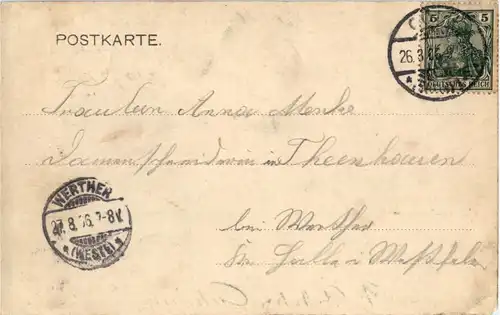 POSTKARTE.
5 5
26.3.
DEUTSCHES REICH
Fräulein Anna Menke
Damenschneiderin in Theenhausen
WERTHER
27.8.06.7-8V.
* (WESTF) *
bei Werther
Halle i Westfalen